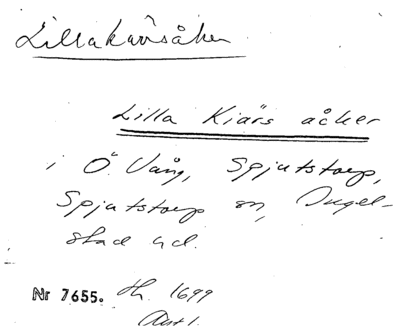 Lillakärsåker
Lilla Kiärs åcker
i Ö. Vång, Spjutstorp,
Spjutstorp sn, Ingel-
stad hd.
Nr 7655. Jb. 1699
Avst.